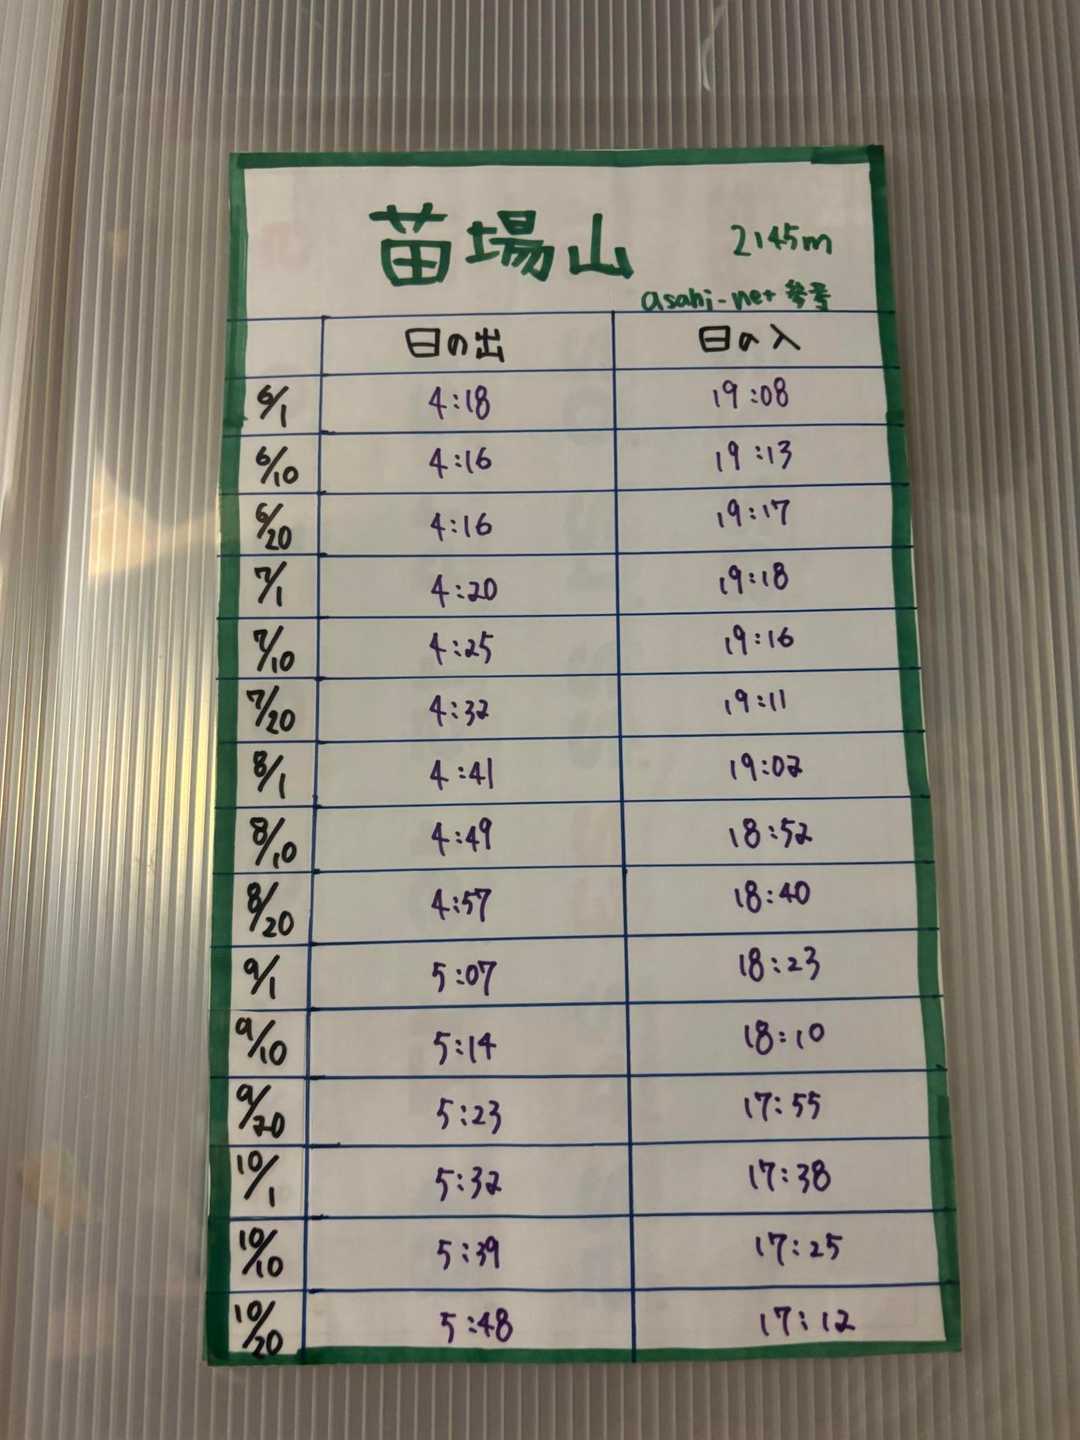 苗場山 2145m
asahi-net 参考
日の出 日の入
6/1 4:18 19:08
6/10 4:16 19:13
6/20 4:16 19:17
7/1 4:20 19:18
7/10 4:25 19:16
7/20 4:32 19:11
8/1 4:41 19:02
8/10 4:49 18:52
8/20 4:57 18:40
9/1 5:07 18:23
9/10 5:14 18:10
9/20 5:23 17:55
10/1 5:32 17:38
10/10 5:39 17:25
10/20 5:48 17:12